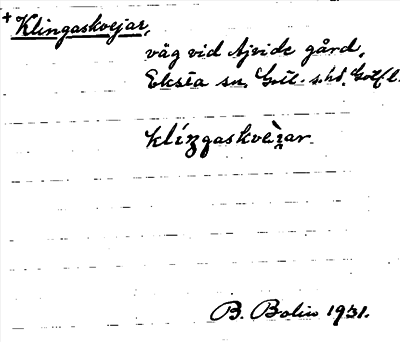 + Klingaskvejar,
väg vid Ajvide gård,
Eksta sn, Gotl. s. hd. Gotl. l.
klíŋgaskvèi̯ar.
B. Bolin 1931.